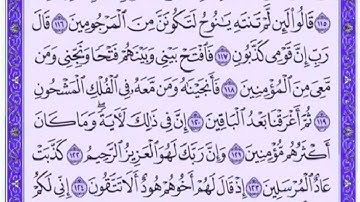 ١١٥ قَالُوا۟ لَئِن لَّمْ تَنتَهِ يَـٰنُوحُ لَتَكُونَنَّ مِنَ ٱلْمَرْجُومِينَ ١١٦ قَالَ
رَبِّ إِنَّ قَوْمِى كَذَّبُونِ ١١٧ فَٱفْتَحْ بَيْنِى وَبَيْنَهُمْ فَتْحًا وَنَجِّنِى وَمَن
مَّعِىَ مِنَ ٱلْمُؤْمِنِينَ ١١٨ فَأَنجَيْنَـٰهُ وَمَن مَّعَهُۥ فِى ٱلْفُلْكِ ٱلْمَشْحُونِ
١١٩ ثُمَّ أَغْرَقْنَا بَعْدُ ٱلْبَاقِينَ ١٢٠ إِنَّ فِى ذَٰلِكَ لَـَٔايَةً ۖ وَمَا كَانَ
أَكْثَرُهُم مُّؤْمِنِينَ ١٢١ وَإِنَّ رَبَّكَ لَهُوَ ٱلْعَزِيزُ ٱلرَّحِيمُ ١٢٢ كَذَّبَتْ
عَادٌ ٱلْمُرْسَلِينَ ١٢٣ إِذْ قَالَ لَهُمْ أَخُوهُمْ هُودٌ أَلَا تَتَّقُونَ ١٢٤ إِنِّى لَكُمْ